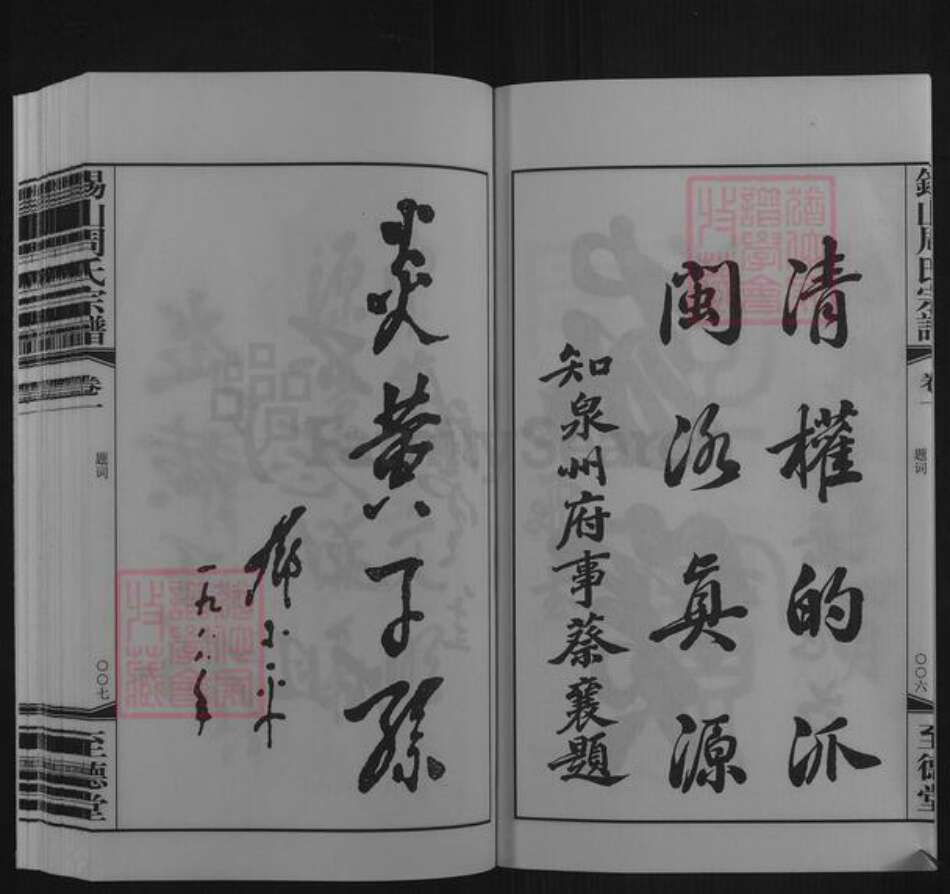 錫山周氏宗譜
卷一
题词
〇〇六
至德堂
清權的派
閩泒真源
知泉州府事蔡襄題
炎黄子孫
鄧小平
一九八八年
錫山周氏宗譜
卷一
题词
〇〇七
至德堂
FamilySearch